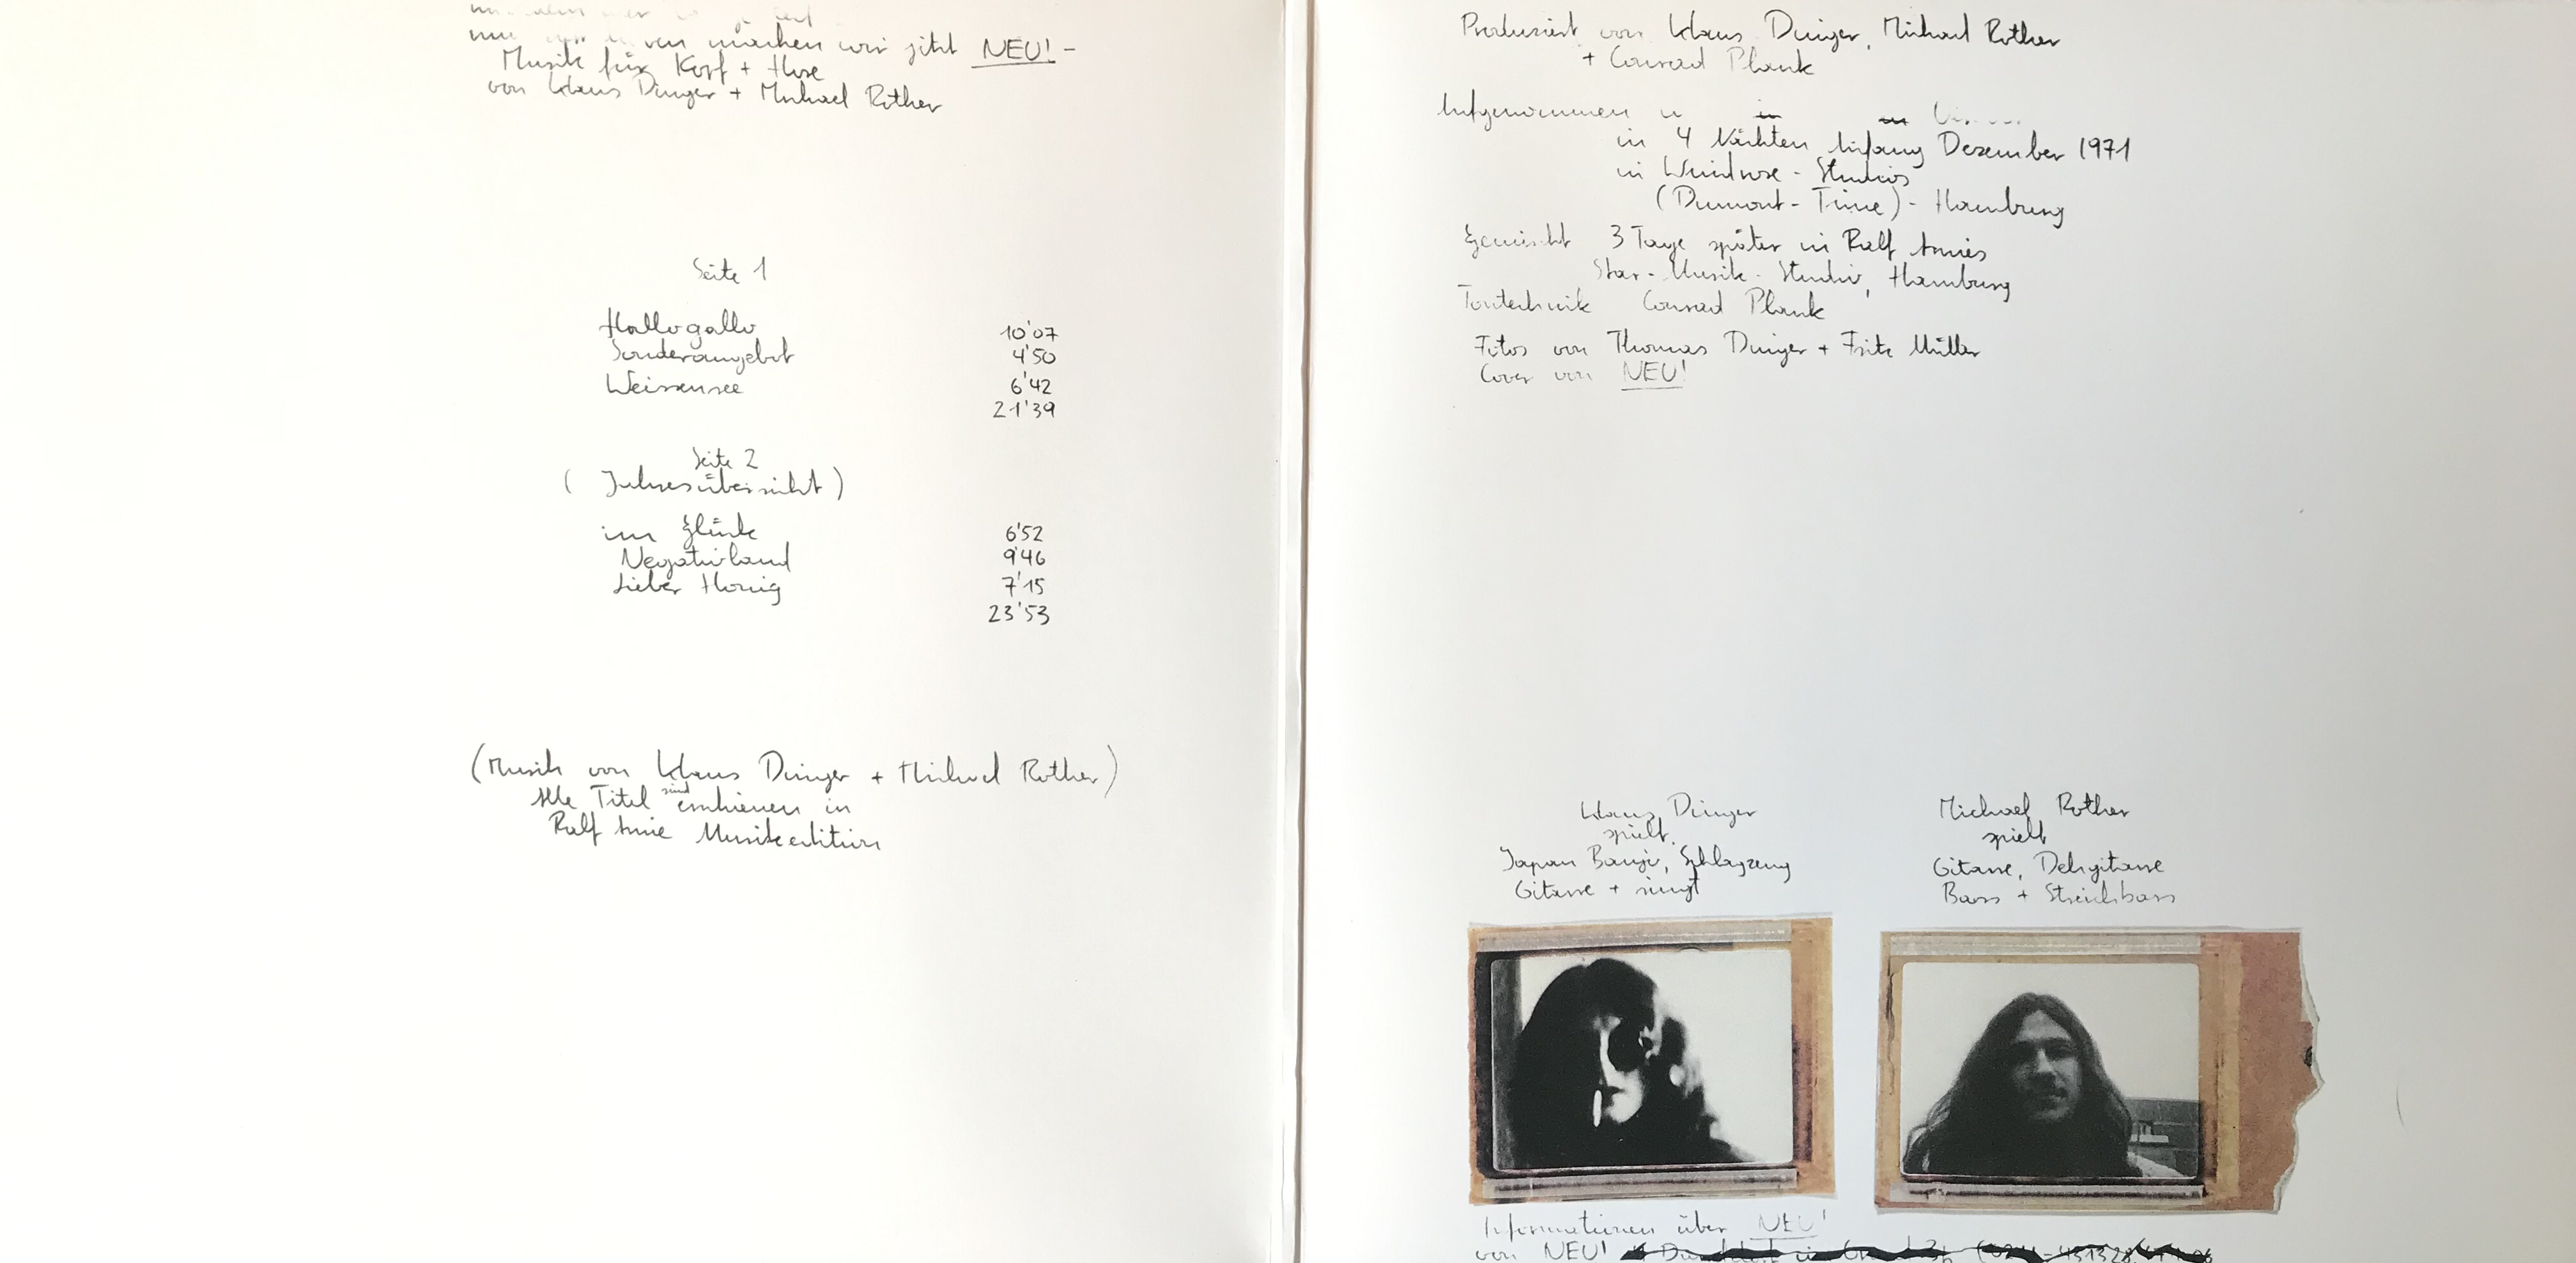 machen wir jetzt NEU! -
Musik für Kopf + Hose
von Klaus Dinger + Michael Rother
Seite 1
Hallogallo 10'07
Sonderangebot 4'50
Weissensee 6'42
21'39
Seite 2
( Jahresübersicht )
im Glück 6'52
Negativland 9'46
Lieber Honig 7'15
23'53
(Musik von Klaus Dinger + Michael Rother)
Alle Titel sind erschienen in
Ralf Arnie Musikedition
Produziert von Klaus Dinger, Michael Rother
+ Conrad Plank
Aufgenommen
in 4 Nächten Anfang Dezember 1971
in Windrose - Studios
(Dumont - Time) - Hamburg
Gemischt 3 Tage später in Ralf Arnies
Star - Musik - Studio, Hamburg
Tontechnik Conrad Plank
Fotos von Thomas Dinger + Fritz Müller
Cover von NEU!
Klaus Dinger
spielt
Japan Banjo, Schlagzeug
Gitarre + singt
Michael Rother
spielt
Gitarre, Dehgitarre
Bass + Streichbass
Informationen über NEU!
von NEU!